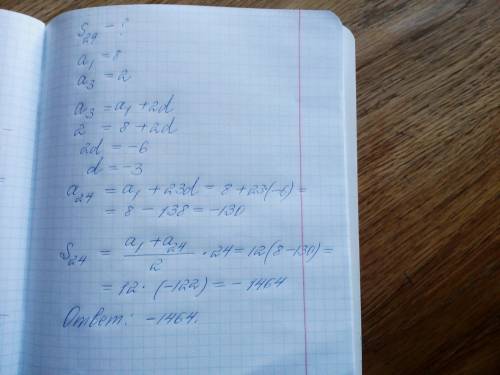 S₂₄ - ?
a₁ = 8
a₃ = 2
a₃ = a₁ + 2d
2 = 8 + 2d
2d = -6
d = -3
a₂₄ = a₁ + 23d = 8 + 23(-6) =
= 8 - 138 = -130
S₂₄ = (a₁ + a₂₄)/2 · 24 = 12(8-130) =
= 12 · (-122) = -1464
Ответ: -1464.